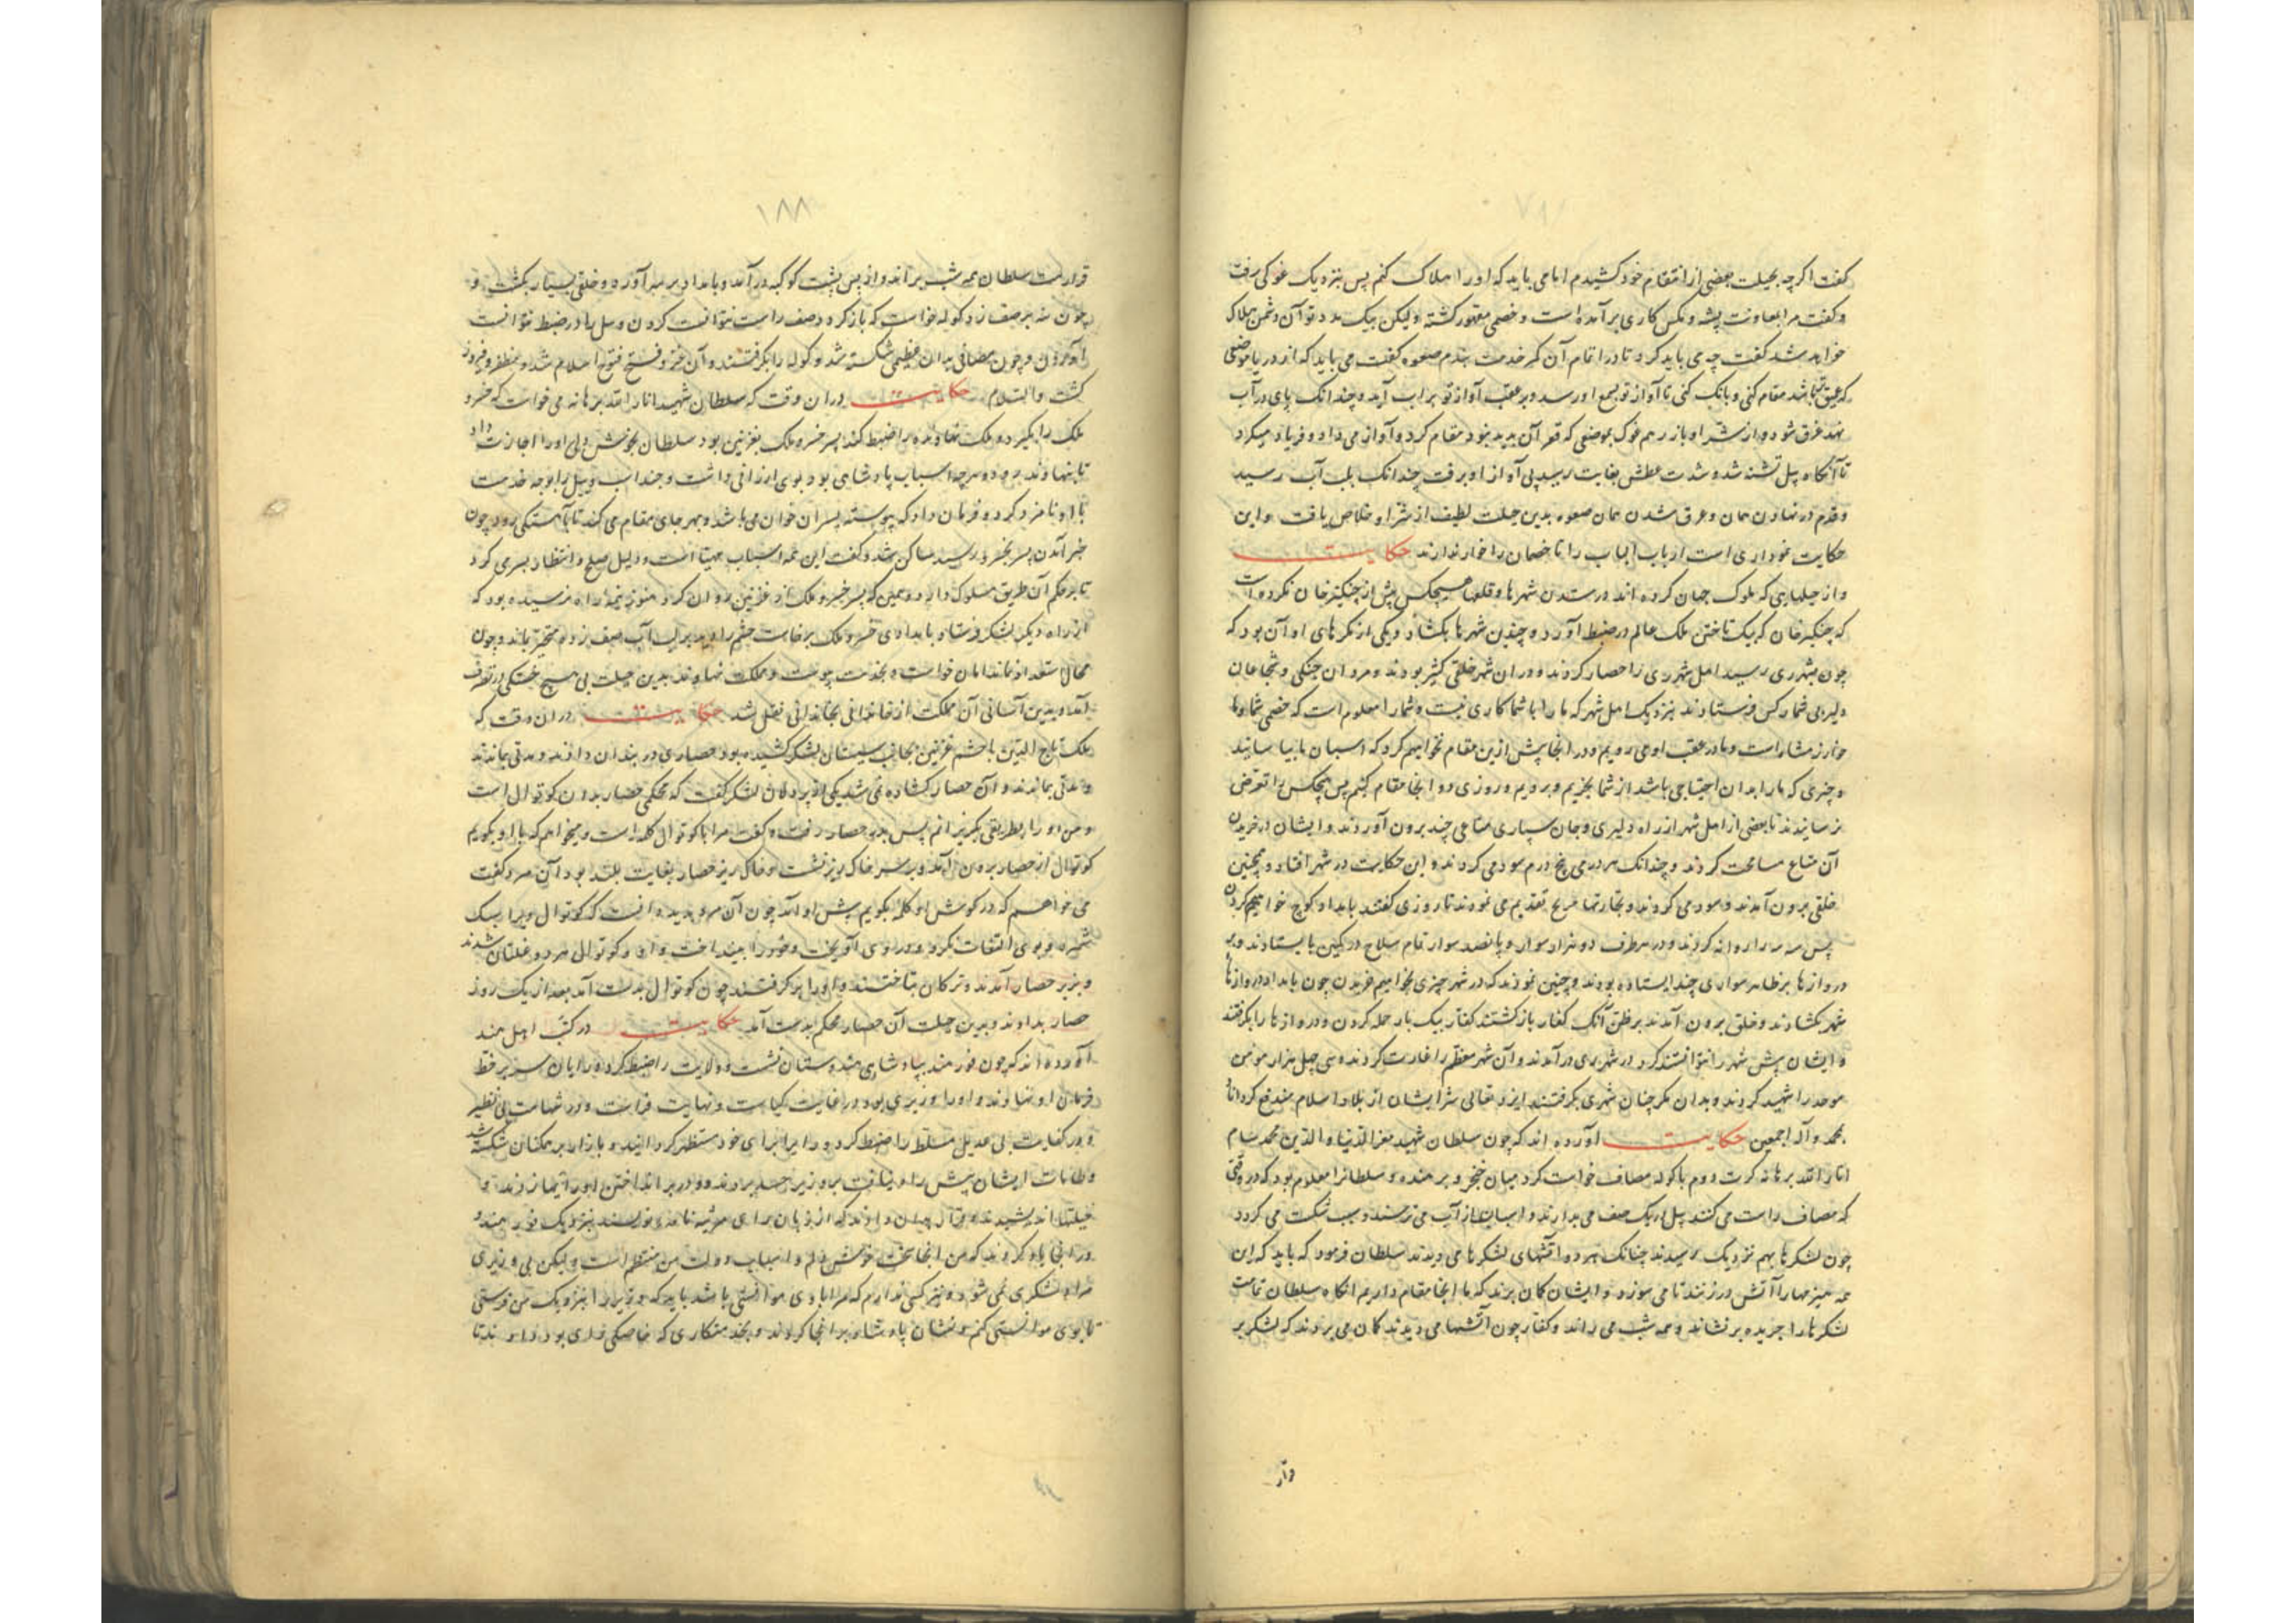 کفت اکرچه بحیلت بعضی از انتقام خود کشیدم اما می باید که او را هلاک کنم پس بنزدیک غوکی رفت
و کفت مرا بمعاونت پشه و مکس کاری برآمده است و خصمی مقهور کشته ولیکن بیک مدد تو آن دشمن هلاک
خواهد شد کفت چه می باید کرد تا در اتمام آن کمر خدمت بندم صعوه کفت می باید که از دریا موضعی
که عمیق باشد مقام کنی و بانک کنی تا آواز تو بسمع او رسد و بر عقب آواز تو براب آید و چندانک پای در آب
نهد غرق شود و از شر او باز رهم غوک بموضعی که قعر آن پدید نبود مقام کرد و آواز می داد و فریاد میکرد
تا آنکاه پیل تشنه شد و شدت عطش بغایت رسید پی آواز او برفت چندانک بلب آب رسید
و قدم در نهادن همان و غرق شدن همان صعوه بدین حیلت لطیف از شر او خلاص یافت و این
حکایت نموداری است ارباب الباب را تا خصمان را خوار ندارند حکایت
و از حیلهایی که ملوک جهان کرده اند در ستدن شهرها و قلعها هیچکس پیش از چنکیزخان نکرده است
که چنکیزخان که بیک تاختن ملک عالم در ضبط آورد و چندین شهرها بکشاد و یکی از مکرهای او آن بود که
چون بشهری رسید اهل شهر دی را حصار کردند و در ان شهر خلقی کثیر بودند و مردان جنکی و شجاعان
دلیر وی شمار کس فرستادند بنزدیک اهل شهر که ما را با شما کاری نیست و شما را معلوم است که خصمی شما و ما
خوارزمشاه است و ما در عقب او می رویم و در اینجا پیش ازین مقام نخواهیم کرد که اسبان ما بیاسایند
و چیزی که ما را بدان احتیاجی باشد از شما بخریم و برویم و روزی دو اینجا مقام کنیم پس هیچکس را تعرض
نرسانیدند تا بعضی از اهل شهر از راه دلیری و جان سپاری متاعی چند برون آوردند و ایشان در خریدن
آن متاع مسامحت کردند و چندانک مر درمی پنج درم سود می کردند و این حکایت در شهر افتاد و همچنین
خلقی برون آمدند و سود می کردند و تجارتها مربح تقدیم می نمودند تا روزی کفتند بامداد کوچ خواهیم کردن
پس بنه را روانه کردند و در هر طرف دو هزار سوار و پانصد سوار تمام سلاح در کمین بایستادند و بر
دروازها بر ظاهر سواری چند ایستاده بودند و چنین نمودند که در شهر چیزی خواهیم خریدن چون بامداد دروازها
شهر بکشادند و خلق برون آمدند بر ظن آنک کفار بازکشتند کفار بیک بار حمله کردن و دروازها را بکرفتند
و ایشان پیش شهر را نتوانستند کرد در شهر ری درآمدند و آن شهر معظم را غارت کردند و سی چهل هزار مؤمن
موحد را شهید کردند و بدان مکر چنان شهری بکرفتند ایزد تعالی شر ایشان از بلاد اسلام مندفع کرداناد
بمحمد و آله اجمعین حکایت آورده اند که چون سلطان شهید معز الدنیا و الدین محمد سام
انار الله برهانه کرت دوم با کوله مصاف خواست کرد میان خنجر و برهنده و سلطانرا معلوم بود که در وقتی
که مصاف راست می کنند پیل در یک صف می بدارند و اسبان از آن می ترسند و سبب شکست می کردد
چون لشکرها بهم نزدیک رسیدند چنانک هر دو آتشهای لشکرها می دیدند سلطان فرمود که باید که این
همه هیزمها را آتش در زنند تا می سوزد و ایشان کمان برند که ما اینجا مقام داریم انکاه سلطان تمامت
لشکرها را جریده برنشاند و همه شب می راند و کفار چون آتشها می دیدند کمان می بردند که لشکر بر
وار
۱۸۸
قرارست سلطان همه شب براند و از پس پشت کوکبه درآمد و بامداد بر سر آورد و خلقی بسیار بکشت و
چون بنه بر صف زد کوله خواست که باز کردد صف راست نتوانست کردن و پیل را در ضبط نتوانست
آوردن و چون مصافی بدان عظیمی شکسته شد و کوله را بکرفتند و آن فتح فتوح اسلام شد و مظفر و فیروز
کشت والسلام حکایت دران وقت که سلطان شهید انار الله برهانه می خواست که خسرو
ملک را بکیرد و ملک نهاونده را ضبط کند پسر خسرو ملک بغزنین بود سلطان بخوش دلی او را اجازت داد
تا بنهاوند برود و هرچه اسباب پادشاهی بود بوی ارزانی داشت و چند اسب و پیل را بوجه خدمت
با او نامزد کرد و فرمان داد که پیوسته بسر ان خوان می باشد و بهر جای مقام می کند تا بآهستکی رود چون
خبر آمدن پسر بخسرو رسید ساکن شد و کفت این همه اسباب مهیا است و دلیل صلح و انتظار بسر می کرد
تا بر حکم آن طریق مسلوک دارد و همین که پسر خسرو ملک از غزنین روان کرد هنوز نیمه راه نرسیده بود که
از راه دیکر لشکر فرستاد بامدادی خسرو ملک برخاست حشم را دید بر لب آب صف زده متحیر بماند و چون
مجال ستعداد نماند امان خواست و بخدمت پیوست و مملکت نهاوند بدین حیلت بی هیچ خستکی در تصرف
آمد و بدین آسانی آن مملکت از خاندانی بخاندانی نقل شد حکایت دران وقت که
ملک تاج الدین با حشم غزنین بجانب سیستان لشکر کشیده بود حصاری در بندان دادند و مدتی بماندند
و مدتی بماندند و آن حصار کشاده نمی شد یکی از پر دلان لشکر کفت که محکمی حصار بدان کوتوال است
و من او را بطریقی بکیرانم پس بدر حصار رفت و کفت مرا با کوتوال کله است و میخواهم که با او بکویم
کوتوال از حصار برون آمد و بر سر خاک ریز نشست و خاک ریز حصار بغایت بلند بود آن مرد کفت
می خواهم که در کوش او کله بکویم پیش او آمد چون آن مرد بدید دانست که کوتوال ویرا سبک
شمرد و بوی التفات نکرد و در روی آویخت و خود را بینداخت و او و کوتوال هر دو غلتان شدند
و بزیر حصار آمدند و ترکان بتاختند و او را بر کرفتند چون کوتوال بدست آمد بعد از یک روز
حصار بدادند و بدین حیلت آن حصار محکم بدست آمد حکایت در کتب اهل هند
آورده اند که چون فور هند بپادشاهی هندوستان نشست و ولایت را ضبط کرد و رایان سر بر خط
فرمان او نهادند و او را وزیری بود در غایت کیاست و نهایت فراست و در شهامت بی نظیر
و در کفایت بی عدیل مسلط را ضبط کرد و را برای خود مستظهر کردانید و بازار بر همکنان شکسته شد
و طامات ایشان پیش راه نیافت بر وزیر حسد بردند و در بر انداختن او رایها زدند و
حیلتها اندیشیدند و قرار بدان دادند که از زبان برای مرثیه نامه نویسند بنزدیک فور هند و
در انجا یاد کردند که من انجا سخت خوش دلم و اسباب دولت من منتظم است ولیکن بی وزیری
مرا لشکری نمی شود و نیز کسی ندارم که مرا با وی موانستی باشد باید که وزیر را بنزدیک من فرستی
تا بوی موانستی کنم و نشان پادشاه بر انجا کردند و بخدمتکاری که خاصکی رای بود دادند تا